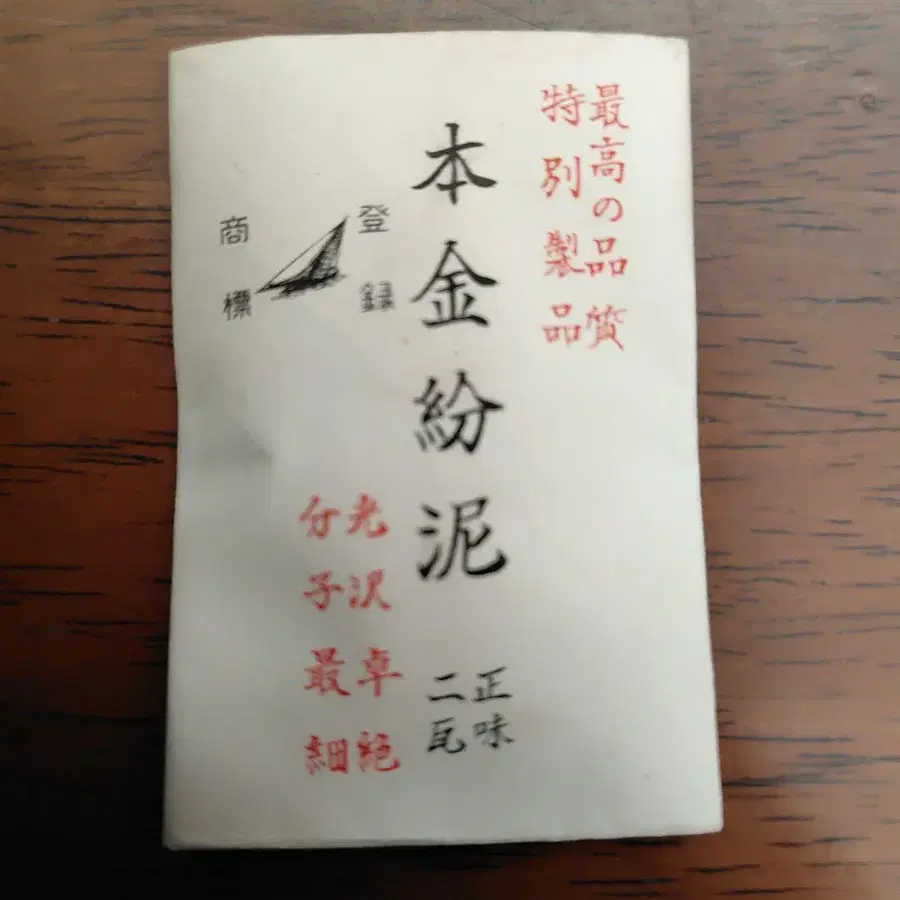 最高の品質
特別製品
本金紛泥
正味
二瓦
登録
商標
光沢卓絶
分子最細